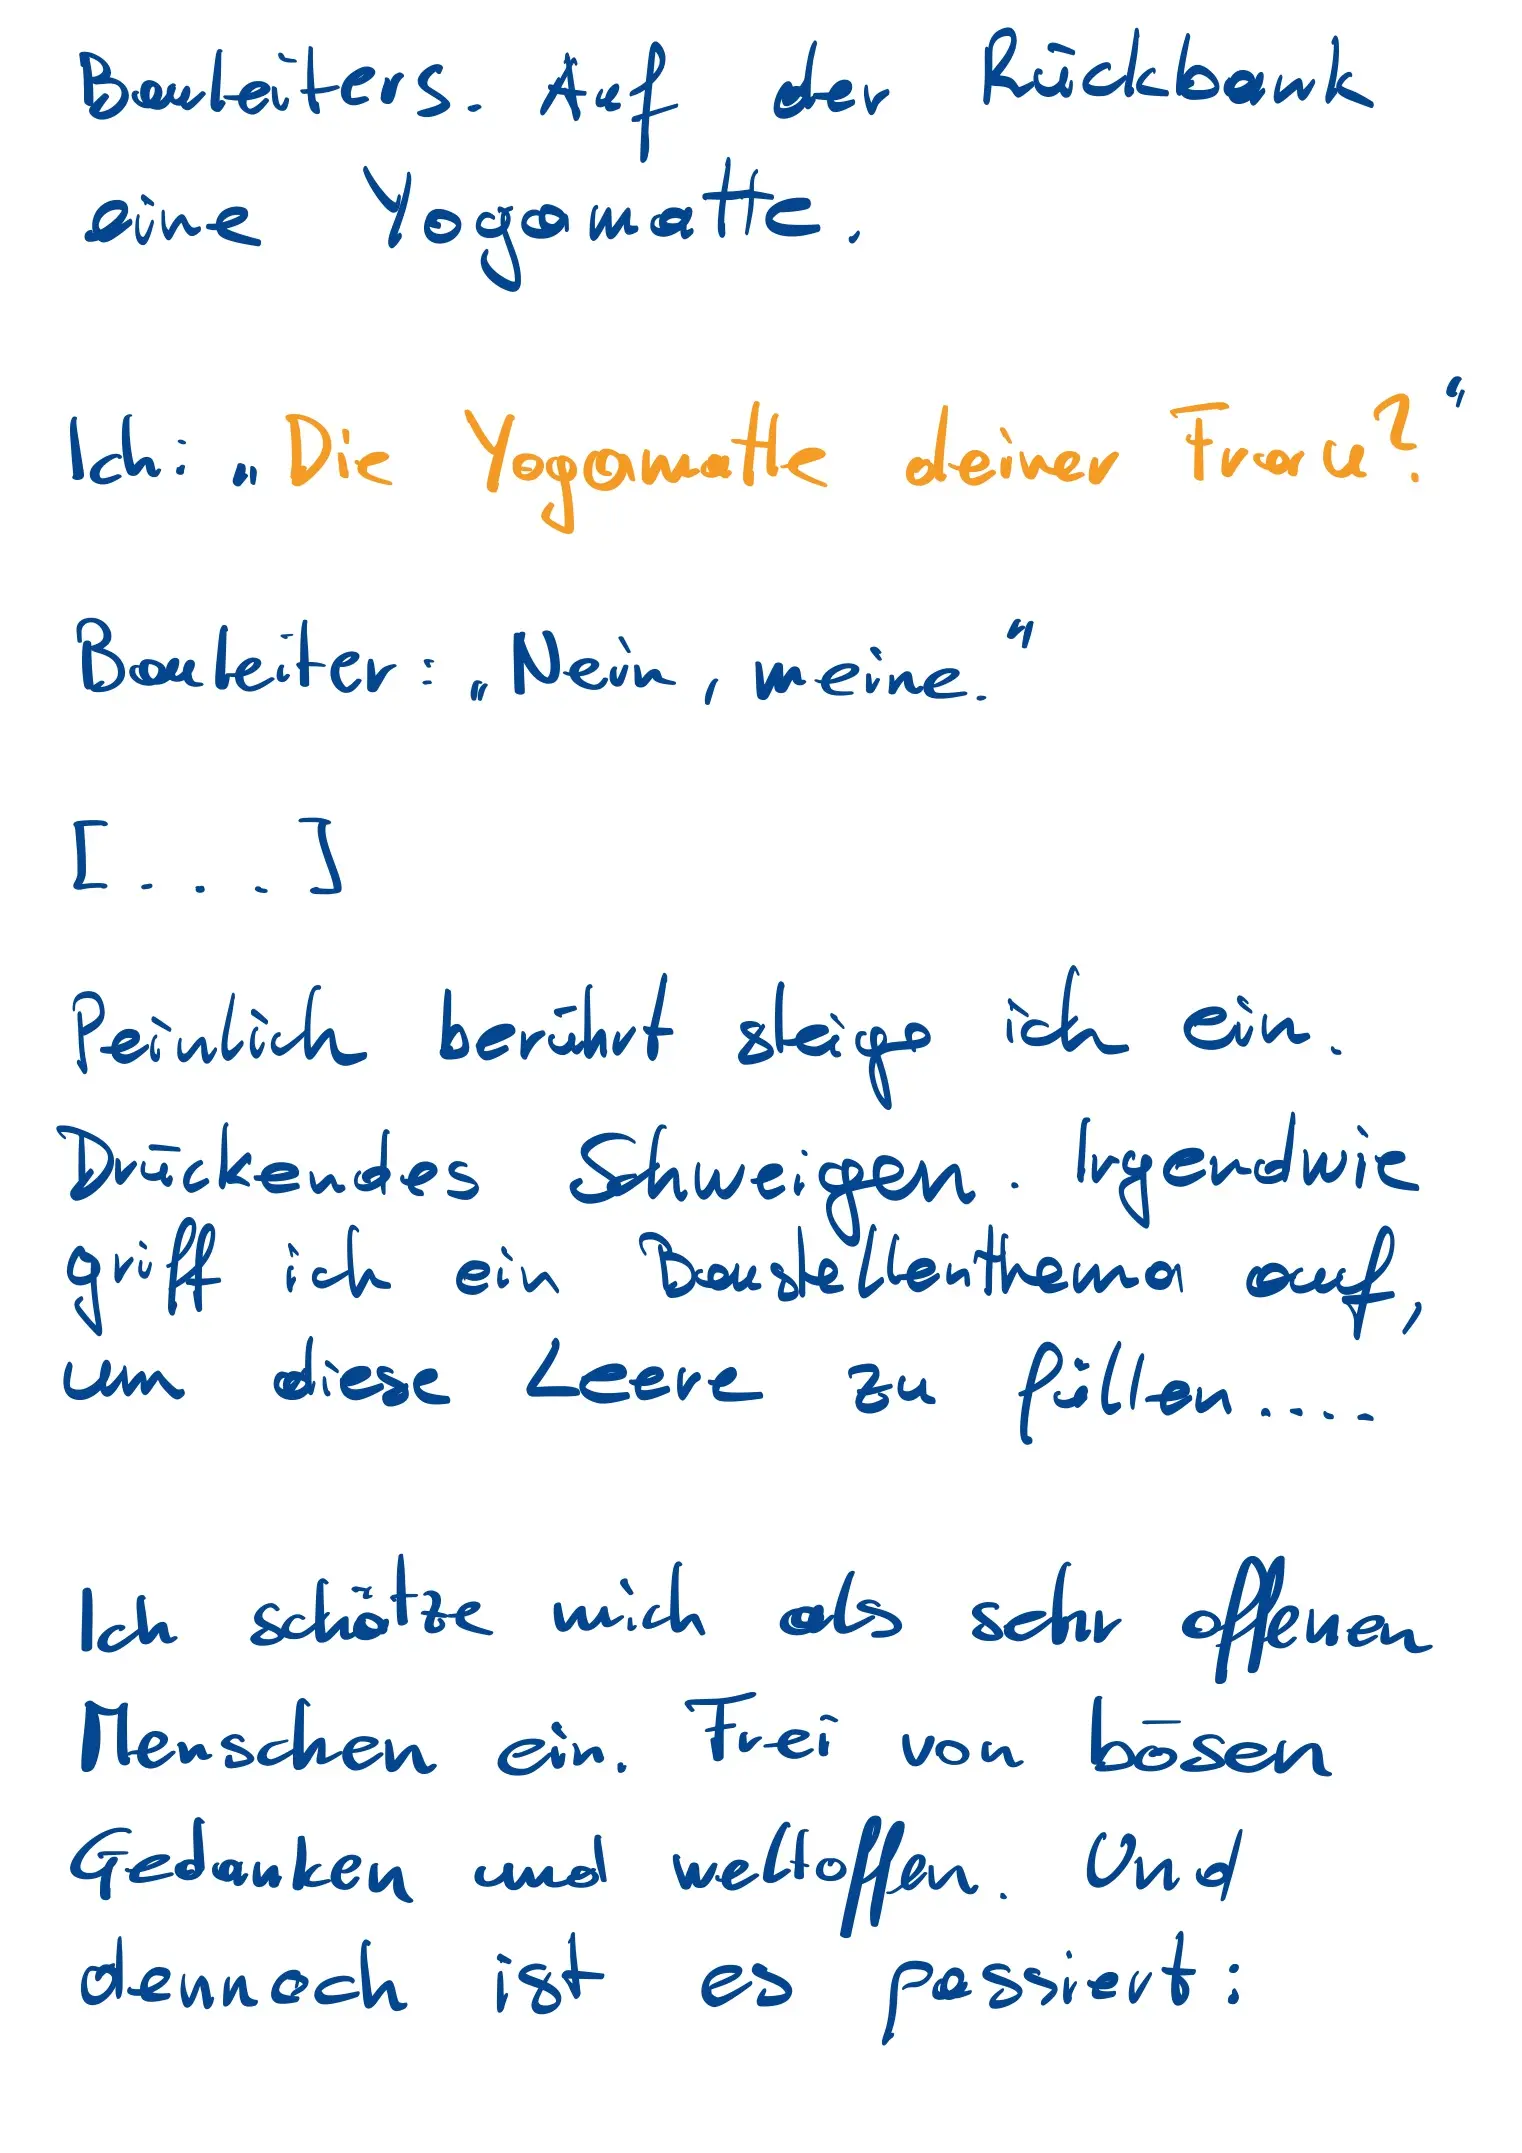 Bauleiters. Auf der Rückbank
eine Yogamatte.
Ich: „Die Yogamatte deiner Frau?“
Bauleiter: „Nein, meine.“
[...]
Peinlich berührt steige ich ein.
Drückendes Schweigen. Irgendwie
griff ich ein Baustellenthema auf,
um diese Leere zu füllen....
Ich schätze mich als sehr offenen
Menschen ein. Frei von bösen
Gedanken und weltoffen. Und
dennoch ist es passiert: